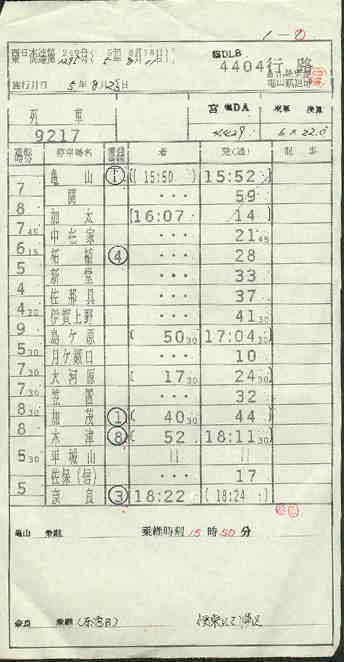 4404行路
施行月日 5年8月25日
列車
9217
運転時分 停車場名 着 発(通) 記事
亀山 ① (15:50) 15:52
7 関 ・・・ 59
8 加太 16:07 14
7 45 中在家 ・・・ 21 45
6 15 柘植 ④ ・・・ 28
5 新堂 ・・・ 33
4 佐那具 ・・・ 37
4 30 伊賀上野 ・・・ 41 30
9 島ケ原 50 30 17:04 30
5 30 月ケ瀬口 ・・・ 10
7 30 大河原 17 30 24 30
7 30 笠置 ・・・ 32
8 30 加茂 ① 40 30 44
8 木津 ⑧ 52 18:11 30
5 30 平城山 || ||
佐保(信) ・・・ 17
5 奈良 ③ 18:22 (18:24)
亀山 乗継 乗継時刻 15時50分
奈良 乗継